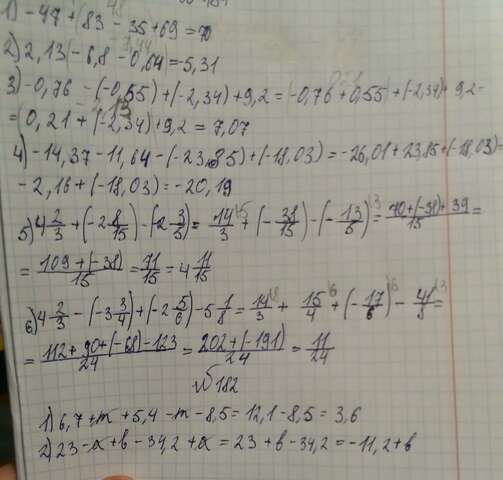 1) -47 + (83 - 35 + 69 = 70
2) 2,13 (-6,8 - 0,64) = 5,31
3) -0,76 - (-0,55) + (-2,34) + 9,2 = (-0,76 + 0,55) + (-2,34) + 9,2 =
= (0,21 + (-2,34) + 9,2 = 7,07
4) -14,37 - 11,64 - (-23,85) + (-18,03) = -26,01 + 23,85 + (-18,03) =
- 2,16 + (-18,03) = -20,19
5) 4 2/3 + (-2 8/15) - (-2 3/5) = 14/3 + (-38/15) - (-13/5) = 70 + (-38) + 39/15 =
= 109 + (-38)/15 = 71/15 = 4 11/15
6) 4 2/3 - (-3 3/4) + (-2 5/6) - 5 1/8 = 14/3 + 15/4 + (-17/6) - 41/8 =
= 112 + 90 + (-68) - 123/24 = 202 + (-191)/24 = 11/24
№ 182
1) 6,7 + m + 5,4 - m - 8,5 = 12,1 - 8,5 = 3,6
2) 23 - a + b - 34,2 + a = 23 + b - 34,2 = -11,2 + b